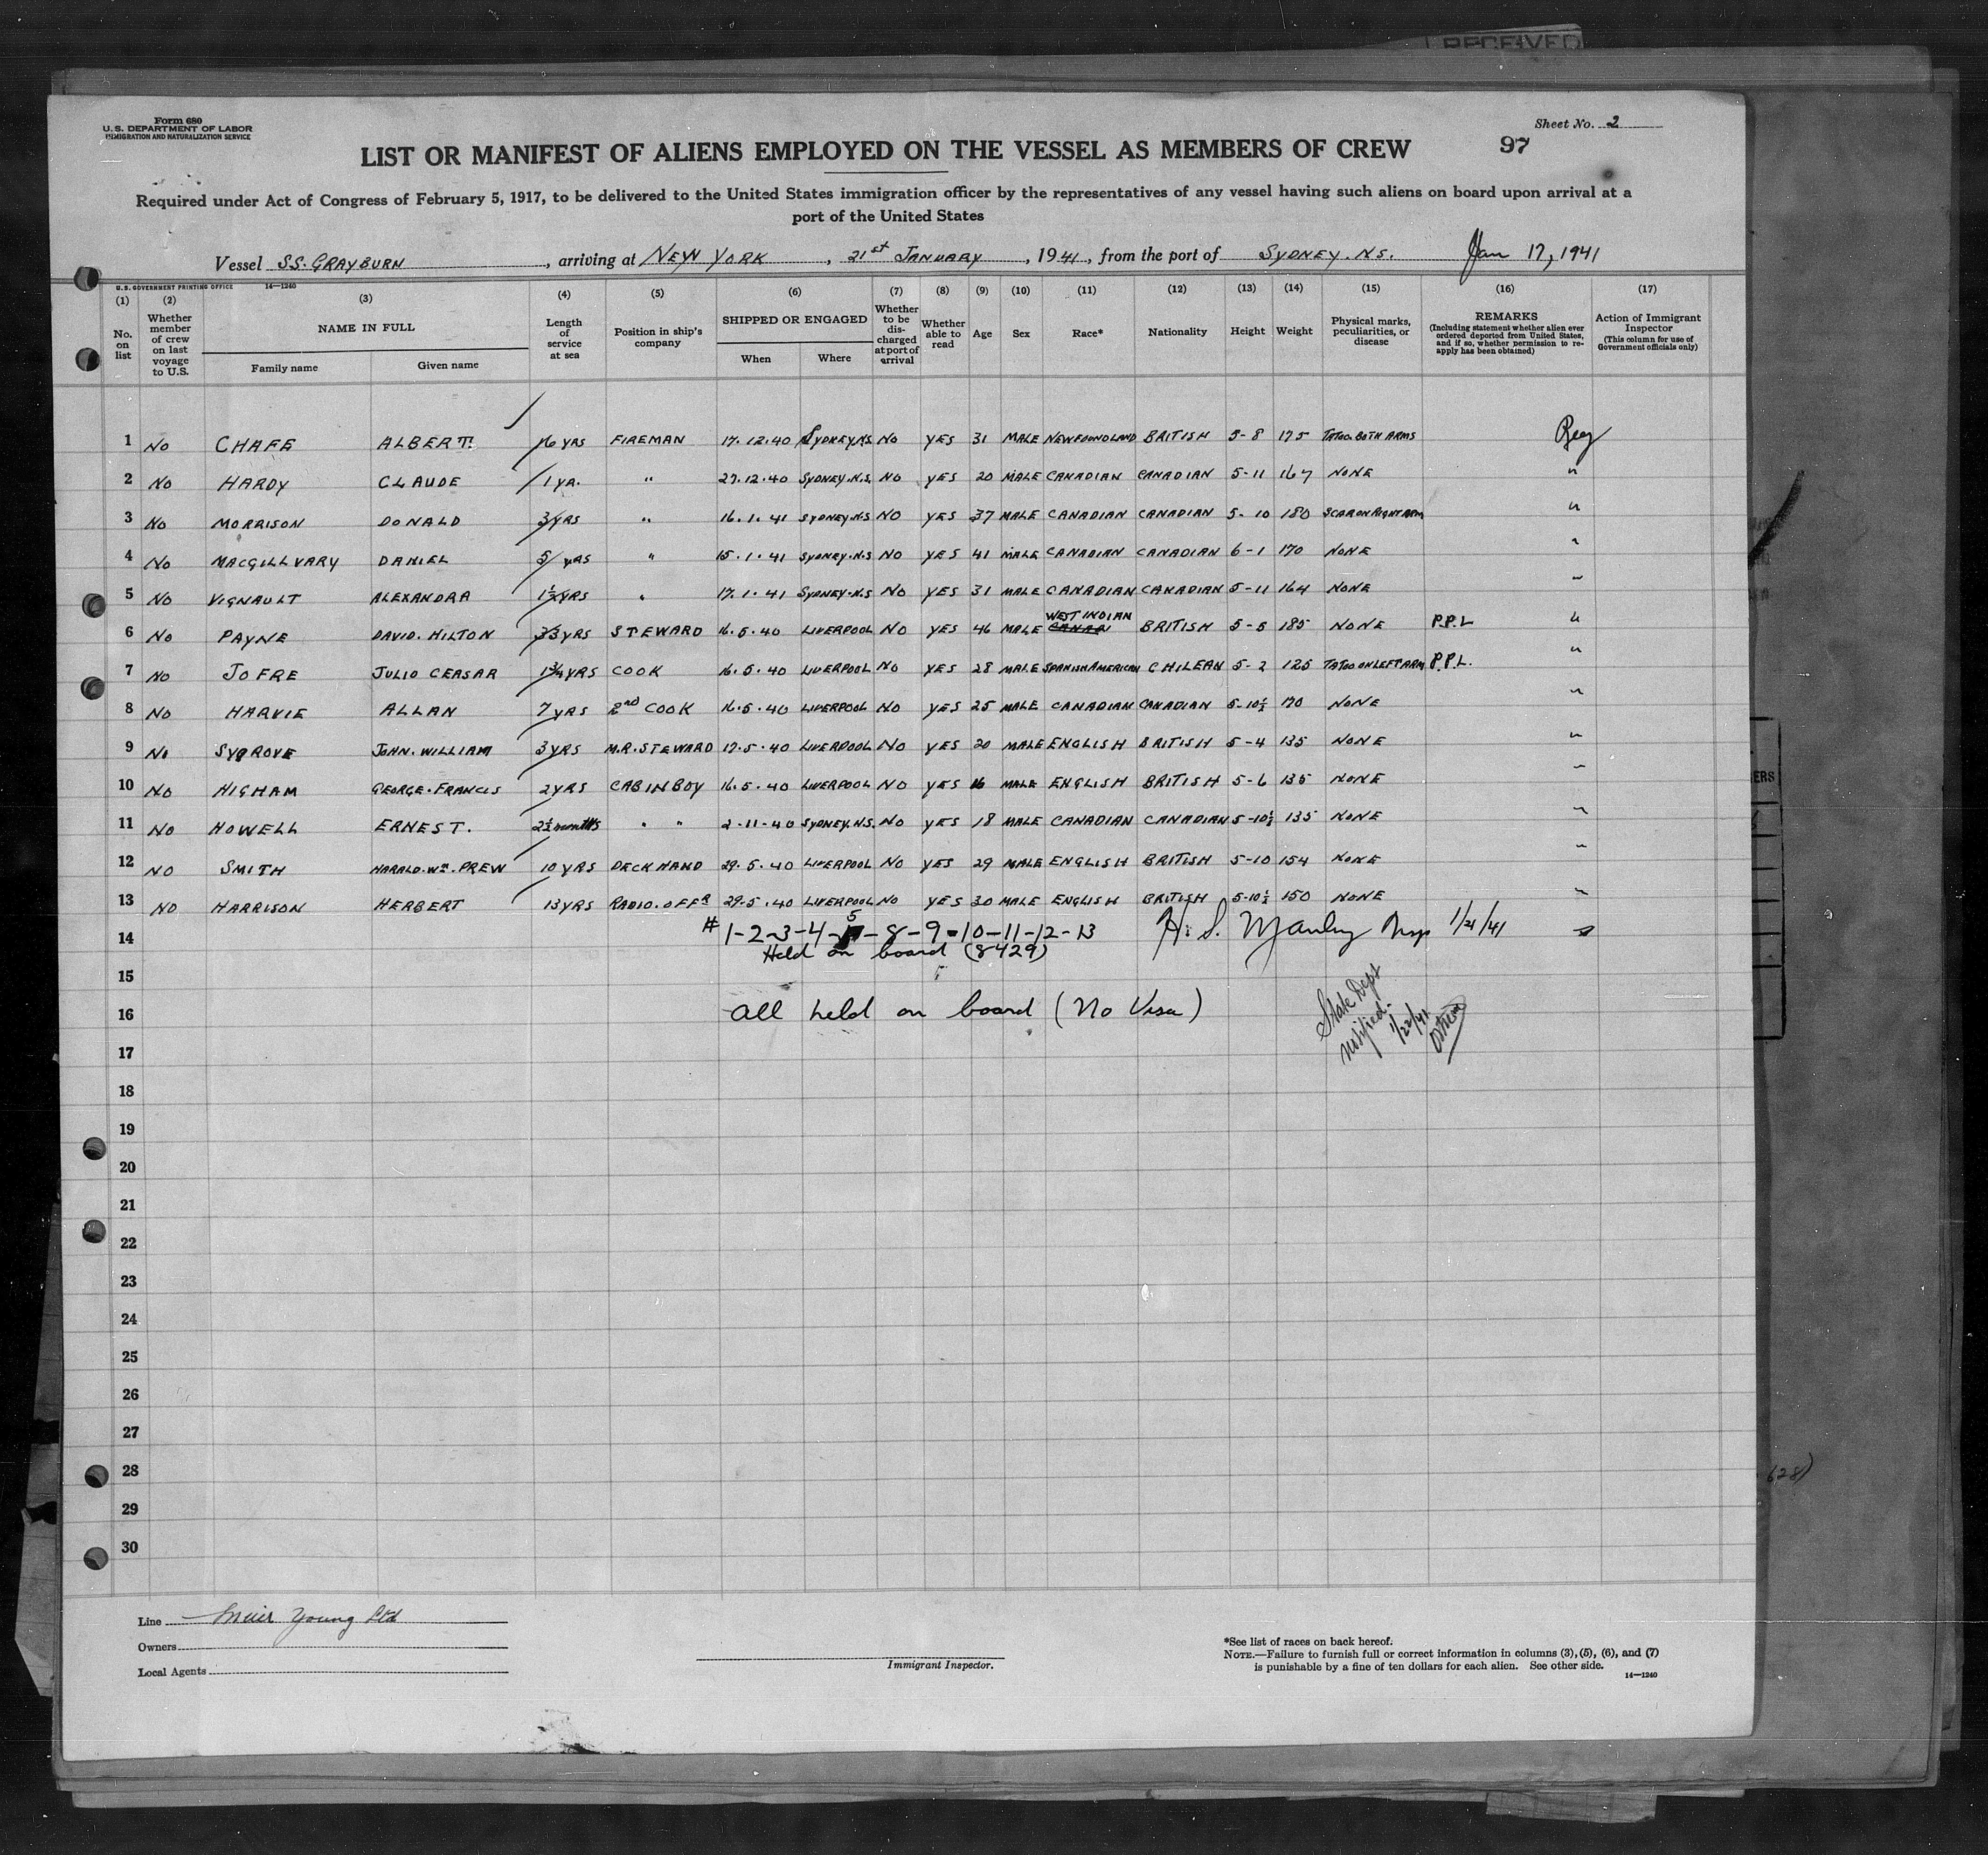 RECEIVED
Form 680
U. S. DEPARTMENT OF LABOR
IMMIGRATION AND NATURALIZATION SERVICE
Sheet No. 2
97
LIST OR MANIFEST OF ALIENS EMPLOYED ON THE VESSEL AS MEMBERS OF CREW
Required under Act of Congress of February 5, 1917, to be delivered to the United States immigration officer by the representatives of any vessel having such aliens on board upon arrival at a
port of the United States
Vessel SS. GRAYBURN, arriving at NEW YORK, 21st JANUARY, 1941, from the port of SYDNEY. N.S. Jan 17, 1941
U. S. GOVERNMENT PRINTING OFFICE 14—1240
(1) (2) (3) (4) (5) (6) (7) (8) (9) (10) (11) (12) (13) (14) (15) (16) (17)
No. on list
Whether member of crew on last voyage to U.S.
NAME IN FULL
Family name
Given name
Length of service at sea
Position in ship's company
SHIPPED OR ENGAGED
When
Where
Whether to be discharged at port of arrival
Whether able to read
Age
Sex
Race*
Nationality
Height
Weight
Physical marks, peculiarities, or disease
REMARKS
(Including statement whether alien ever ordered deported from United States, and if so, whether permission to reapply has been obtained)
Action of Immigrant Inspector
(This column for use of Government officials only)
1 NO CHAFE ALBERT. 16 YRS FIREMAN 17.12.40 SYDNEY.N.S. NO YES 31 MALE NEWFOUNDLAND BRITISH 5-8 175 TATOO BOTH ARMS Reg
2 NO HARDY CLAUDE 1 YR. " 27.12.40 SYDNEY.N.S. NO YES 20 MALE CANADIAN CANADIAN 5-11 167 NONE "
3 NO MORRISON DONALD 3 YRS " 16.1.41 SYDNEY.N.S NO YES 37 MALE CANADIAN CANADIAN 5-10 180 SCAR ON RIGHT ARM "
4 NO MACGILLVARY DANIEL 5 YRS " 15.1.41 SYDNEY.N.S NO YES 41 MALE CANADIAN CANADIAN 6-1 170 NONE "
5 NO VIGNAULT ALEXANDRA 1½ YRS " 17.1.41 SYDNEY.N.S NO YES 31 MALE CANADIAN CANADIAN 5-11 164 NONE "
6 NO PAYNE DAVID. HILTON 33 YRS STEWARD 16.5.40 LIVERPOOL NO YES 46 MALE WEST INDIAN BRITISH 5-5 185 NONE P.P.L "
7 NO JOFRE JULIO CEASAR 1¾ YRS COOK 16.5.40 LIVERPOOL NO YES 28 MALE SPANISH AMERICAN CHILEAN 5-2 125 TATOO ON LEFT ARM P.P.L. "
8 NO HARVIE ALLAN 7 YRS 2nd COOK 16.5.40 LIVERPOOL NO YES 25 MALE CANADIAN CANADIAN 5-10½ 170 NONE "
9 NO SYGROVE JOHN. WILLIAM 3 YRS M.R. STEWARD 17.5.40 LIVERPOOL NO YES 20 MALE ENGLISH BRITISH 5-4 135 NONE "
10 NO HIGHAM GEORGE. FRANCIS 2 YRS CABIN BOY 16.5.40 LIVERPOOL NO YES 16 MALE ENGLISH BRITISH 5-6 135 NONE "
11 NO HOWELL ERNEST. 2½ months " " 2-11-40 SYDNEY.N.S. NO YES 18 MALE CANADIAN CANADIAN 5-10½ 135 NONE "
12 NO SMITH HARALD. Wm. PREW 10 YRS DECK HAND 29.5.40 LIVERPOOL NO YES 29 MALE ENGLISH BRITISH 5-10 154 NONE "
13 NO HARRISON HERBERT 13 YRS RADIO. OFFR 29.5.40 LIVERPOOL NO YES 30 MALE ENGLISH BRITISH 5-10½ 150 NONE "
14 # 1-2-3-4-5-8-9-10-11-12-13 H. S. Manley Insp 1/21/41
Held on board (8429)
15
16 All held on board (No Visa) State Dept notified. 1/22/41
17
18
19
20
21
22
23
24
25
26
27
28
29
30
628)
Line Muir Young Ltd
Owners
Local Agents
Immigrant Inspector.
*See list of races on back hereof.
NOTE.—Failure to furnish full or correct information in columns (3), (5), (6), and (7)
is punishable by a fine of ten dollars for each alien. See other side.
14—1240